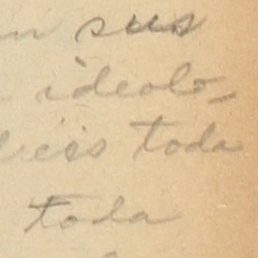 sus
ideolo-
toda
toda